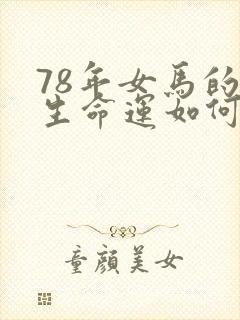 78年女馬的
生命運如何
童顔美女